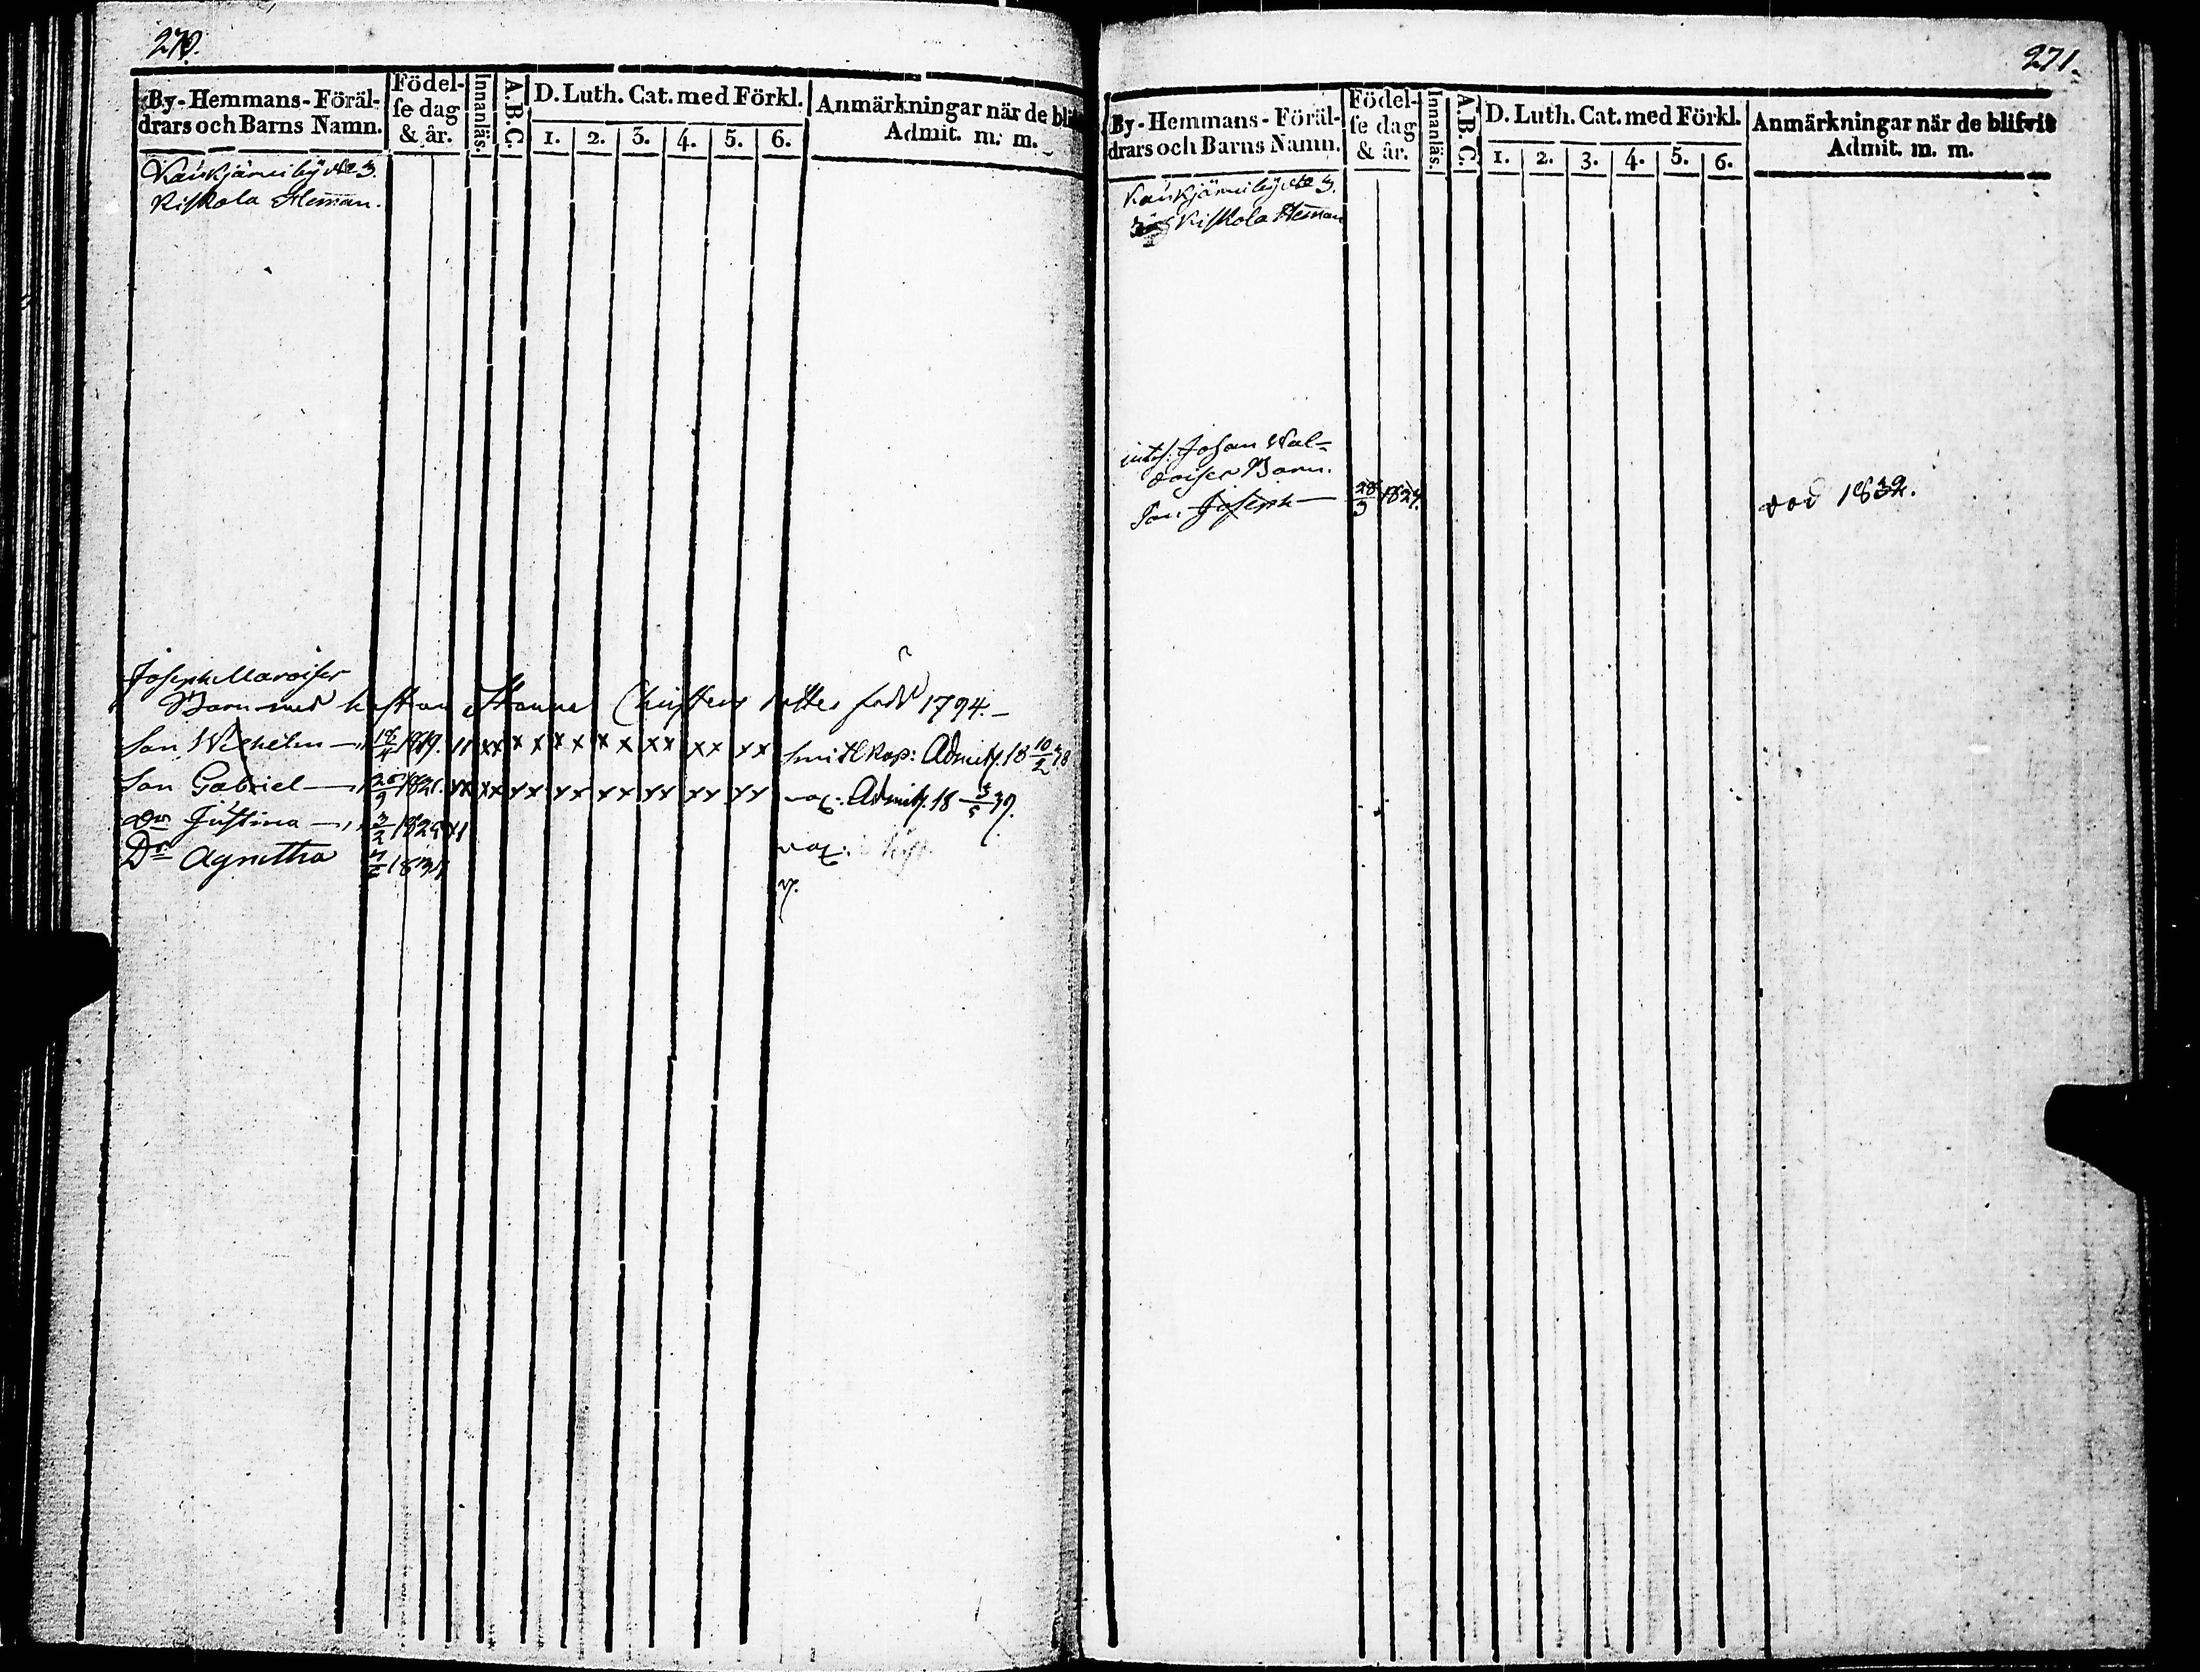 270.
By-Hemmans-Föräl-
drars och Barns Namn.
Födel-
se dag
& år.
Innanläs.
A.B.C.
D. Luth. Cat. med Förkl.
1. 2. 3. 4. 5. 6.
Anmärkningar när de blif
Admit. m. m.
Kaukjärwi by No 3.
Kiskola Heman.
Joseph
Barn med hustrun Hanna Christers dotter född 1794.
Son Wilhelm 18/4 1819. xx x x x x x x xx xx xx Admitt. 18 10/2 38
Son Gabriel 1821. xx xx xx xx xx xx xx xx vax: Admitt. 18 39.
Dr Justina 3/2 182 vax:
Dr Agnetha 183
271.
By-Hemmans-Föräl-
drars och Barns Namn.
Födel-
se dag
& år.
Innanläs.
A.B.C.
D. Luth. Cat. med Förkl.
1. 2. 3. 4. 5. 6.
Anmärkningar när de blifvit
Admit. m. m.
Kaukjärwi by No 3.
Kiskola Heman
inh. Johan Wal-
Barn.
Son Joseph 28/3 1824. död 1832.